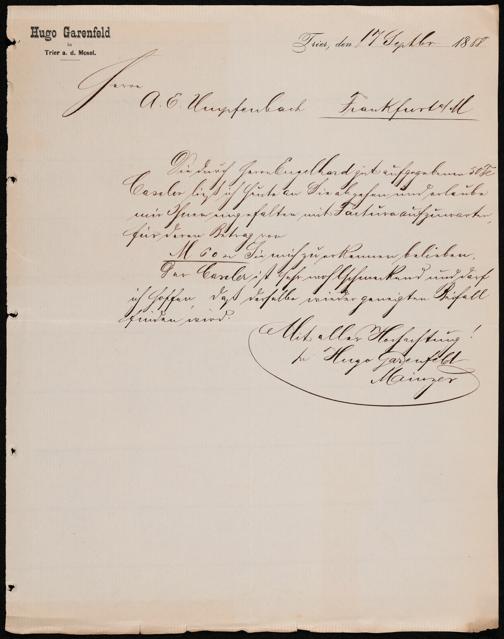 Hugo Garenfeld
in
Trier a. d. Mosel.
Trier, den 17 Septbr 1888
Herrn
A. E. Umpfenbach Frankfurt a/M
Die durch Herrn Engelhard gut aufgegebenen 50 Fl
Caseler ließ ich heute an Sie abgehen und erlaube
mir Ihnen eingefalten mit Factura aufzuwarten,
für deren Betrag von
M 60 Sie mich zu erkennen belieben.
Der Caseler ist sehr wohlschmeckend und darf
ich hoffen, daß derselbe wieder geneigten Beifall
finden wird.
Mit aller Hochachtung!
Hugo Garenfeld
Meinzer